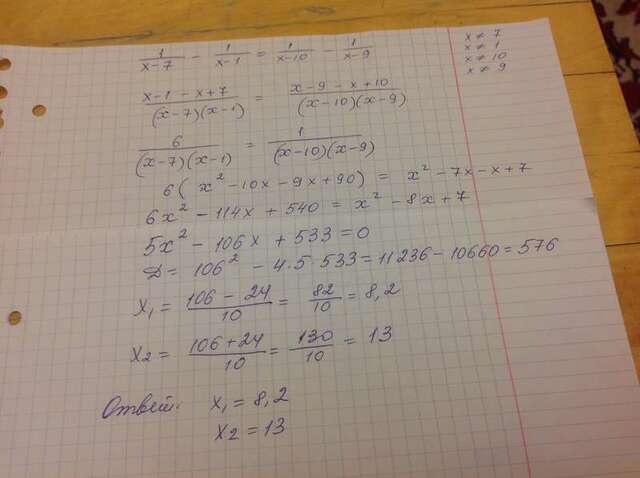 1/(x-7) - 1/(x-1) = 1/(x-10) - 1/(x-9)
x ≠ 7
x ≠ 1
x ≠ 10
x ≠ 9
(x-1-x+7)/((x-7)(x-1)) = (x-9-x+10)/((x-10)(x-9))
6/((x-7)(x-1)) = 1/((x-10)(x-9))
6(x² - 10x - 9x + 90) = x² - 7x - x + 7
6x² - 114x + 540 = x² - 8x + 7
5x² - 106x + 533 = 0
D = 106² - 4·5·533 = 11236 - 10660 = 576
x₁ = (106 - 24)/10 = 82/10 = 8,2
x₂ = (106 + 24)/10 = 130/10 = 13
Ответ: x₁ = 8,2
x₂ = 13